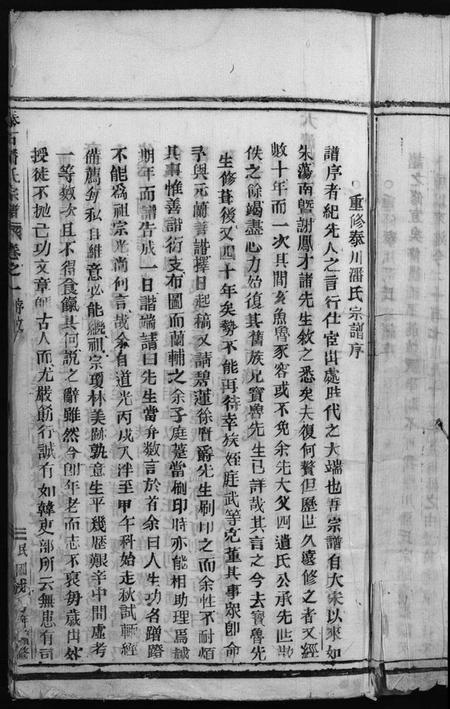 重修泰川潘氏宗譜序
譜序者紀先人之言行仕宦出處歷代之大端也吾宗譜有大宋以來如
朱蕩南暨謝鳳才諸先生敘之悉矣夫復何贅但歷世久遠修之者又經
數十年而一次其間亥魚魯豕容或不免余先大父四遺氏公承先世散
佚之餘竭盡心力始復其舊族兄寶魯先生已詳哉其言之今去寶魯先
生修葺後又四十年矣勢不能再待幸族姪庭武等克董其事眾卽命
予與元蘭善諧擇日起稿又請碧蓮徐賢爵先生刷印之而余性不耐煩
其事惟善諧衍支布圖而蘭輔之余子庭蓳當刷印時亦能相助理焉越
期年而譜告成一日諧端請曰先生當弁數言於首余曰人生功名蹭蹬
不能為祖宗光尚何言哉余自道光丙戌入泮至甲午科始走秋試輒經
備薦每私自維意必能繼祖宗瓊林美跡孰意生平幾歷艱辛中間虛考
一等數次且不得食餼其何說之辭雖然今卽年老而志不衰每歲出外
授徒不拋己功文章師古人而尤嚴飭行誠有如韓吏部所云無患有司
潘氏宗譜 卷之一
民國戊